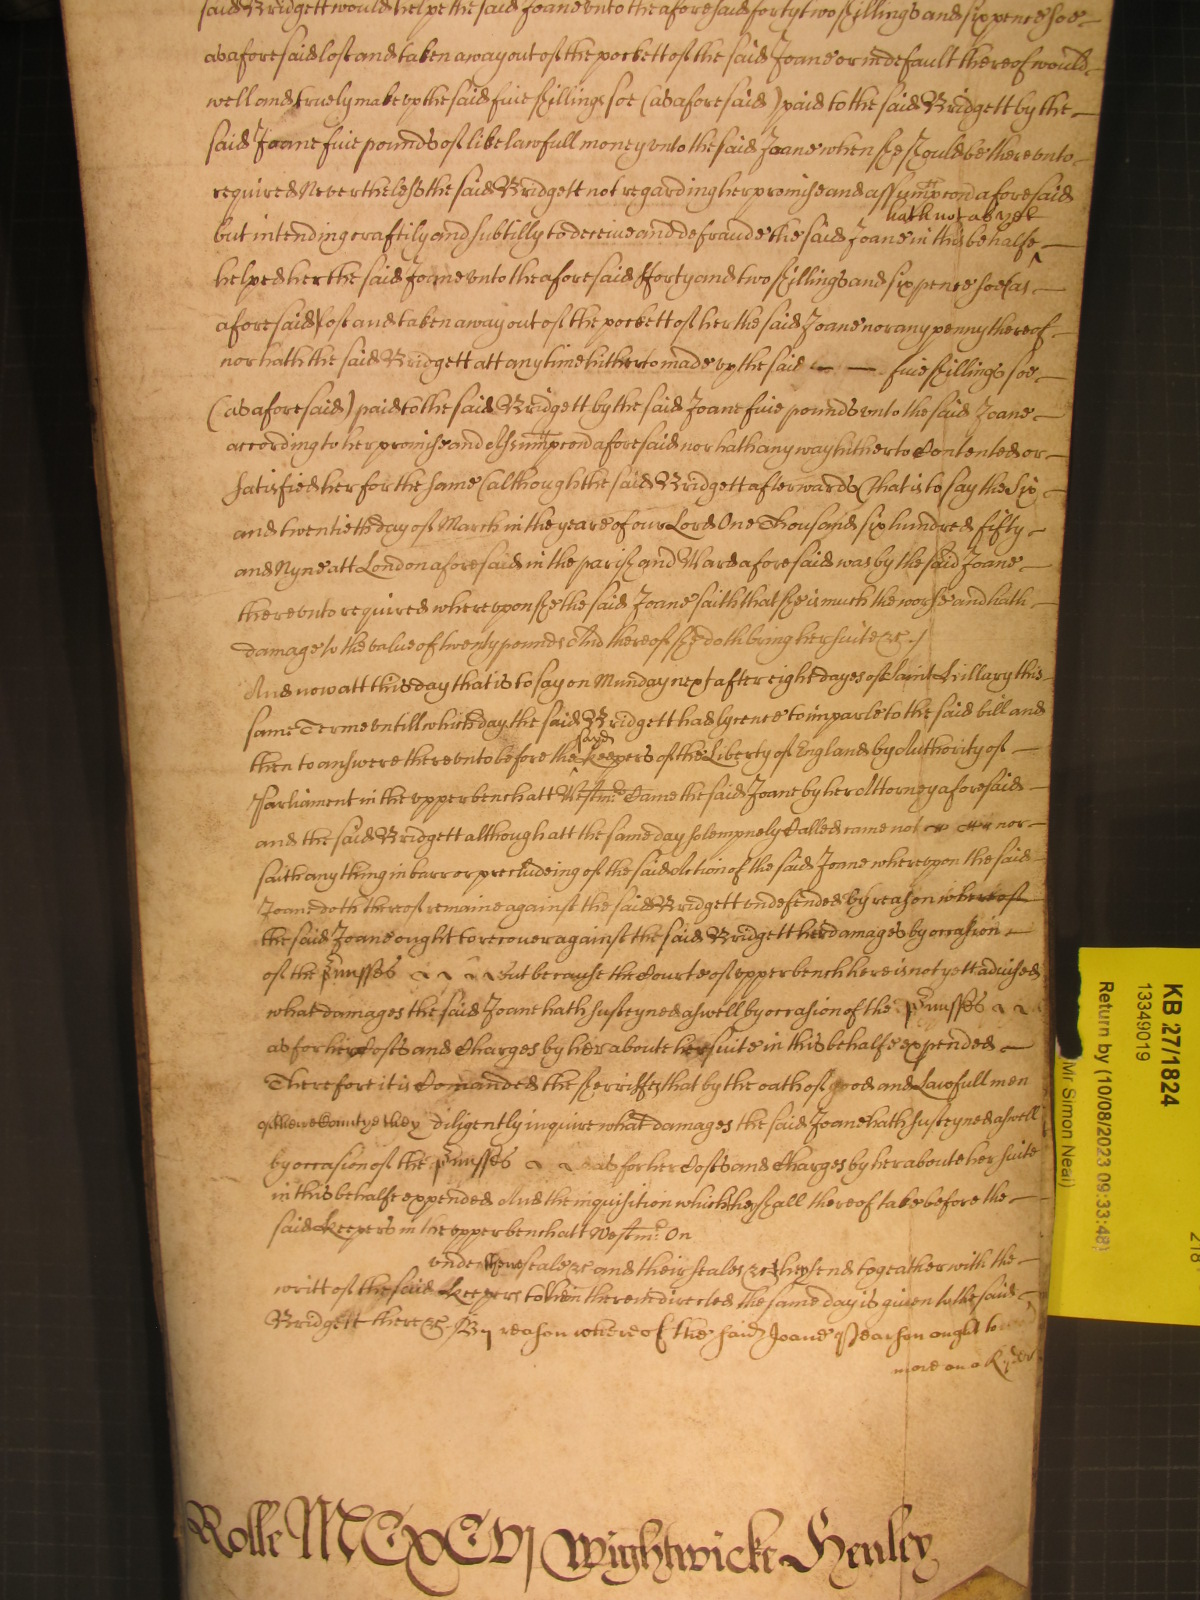 said Bridgett would helpe the said Joane vnto the aforesaid forty two shillings and six pence soe
as aforesaid lost and taken away out of the pockett of the said Joane or in default thereof would
well and truely make vp the said fiue shillings soe (as aforesaid) paid to the said Bridgett by the
said Joane fiue pounds of like lawfull money vnto the said Joane when she should be therevnto
required Neverthelesse the said Bridgett not regarding her promise and assumpcon aforesaid
hath not as yet
but intending craftily and subtilly to deceiue and defraude the said Joane in this behalfe ^
helped her the said Joane vnto the aforesaid fforty and two shillings and six pence soe (as
aforesaid) lost and taken away out of the pockett of her the said Joane nor any penny thereof
nor hath the said Bridgett att any time hitherto made vp the said fiue shillings soe
(as aforesaid) paid to the said Bridgett by the said Joane fiue pounds vnto the said Joane
according to her promise and assumpcon aforesaid nor hath any way hitherto Contented or
satisfied her for the same (although the said Bridgett afterwards (that is to say the Six
and twentieth day of March in the yeare of our Lord One Thousand six hundred fifty
and Nyne att London aforesaid in the parish and Ward aforesaid was by the said Joane
therevnto required wherevpon she the said Joane saith that she is much the worse and hath
damage to the value of twenty pounds And thereof she doth bring her suite &c
And now att this day that is to say on Munday next after eight dayes of Saint Hillary this
same Terme vntill which day the said Bridgett had lycence to imparle to the said bill and
then to answere therevnto before the ^ said Keepers of the Liberty of England by Authority of
Parliament in the vpper bench att Westmr Came the said Joane by her Attorney aforesaid
and the said Bridgett although att the same day solempnely Called came not nor
saith any thing in barr or precludeing of the said Action of the said Joane wherevpon the said
Joane doth thereof remaine against the said Bridgett vndefended by reason whereof
the said Joane ought to recover against the said Bridgett her damages by occasion
of the Pmisses but because the Courte of vpper bench here is not yett advised
what damages the said Joane hath susteyned aswell by occasion of the Pmisses
as for her Costs and Charges by her aboute her suite in this behalfe expended
Therefore it is Comanded the sherriffes that by the oath of good and Lawfull men
of their County they diligently inquire what damages the said Joane hath susteyned aswell
by occasion of the Pmisses as for her Costs and Charges by her aboute her suite
in this behalfe expended And the inquisition which they shall thereof take before the
said Keepers in the vpper bench att Westmr On
vnder their seale &c and their seales &c they send togeather with the
writt of the said Keepers to them therein directed the same day is given to the said
Bridgett there &c By reason whereof the said Joane Pearson ought to
more on a Ryder
Rolle MCXCVI Wightwicke Henley
KB 27/1824
13349019
Return by (10/08/2023 09:33:48)
(Mr Simon Neal)